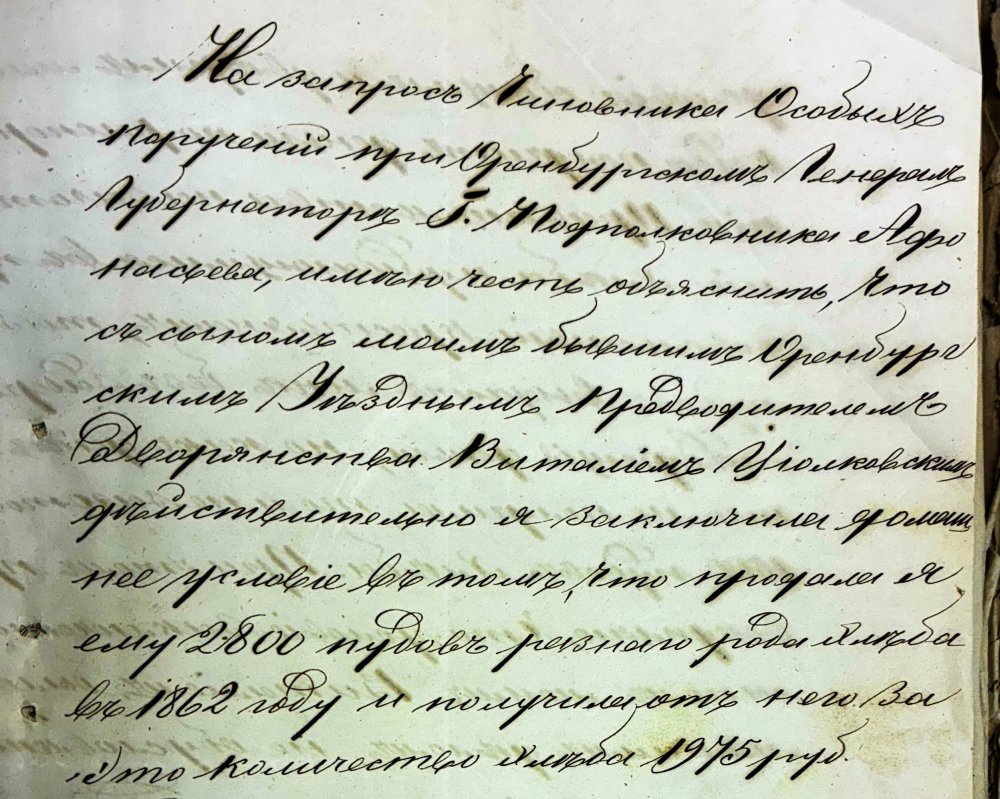 На запросъ Чиновника Особыхъ
порученій при Оренбургскомъ Генералъ
Губернаторѣ Г. Подполковника Афо
насьева, имѣю честь объяснить, что
съ сыномъ моимъ бывшимъ Оренбург
скимъ Уѣзднымъ Предводителемъ
Дворянства Виталіемъ Ціолковскимъ
дѣйствительно я заключила домаш
нее условіе въ томъ, что продала я
ему 2800 пудовъ разнаго рода хлѣба
въ 1862 году и получила отъ него за
это количество хлѣба 1975 руб.